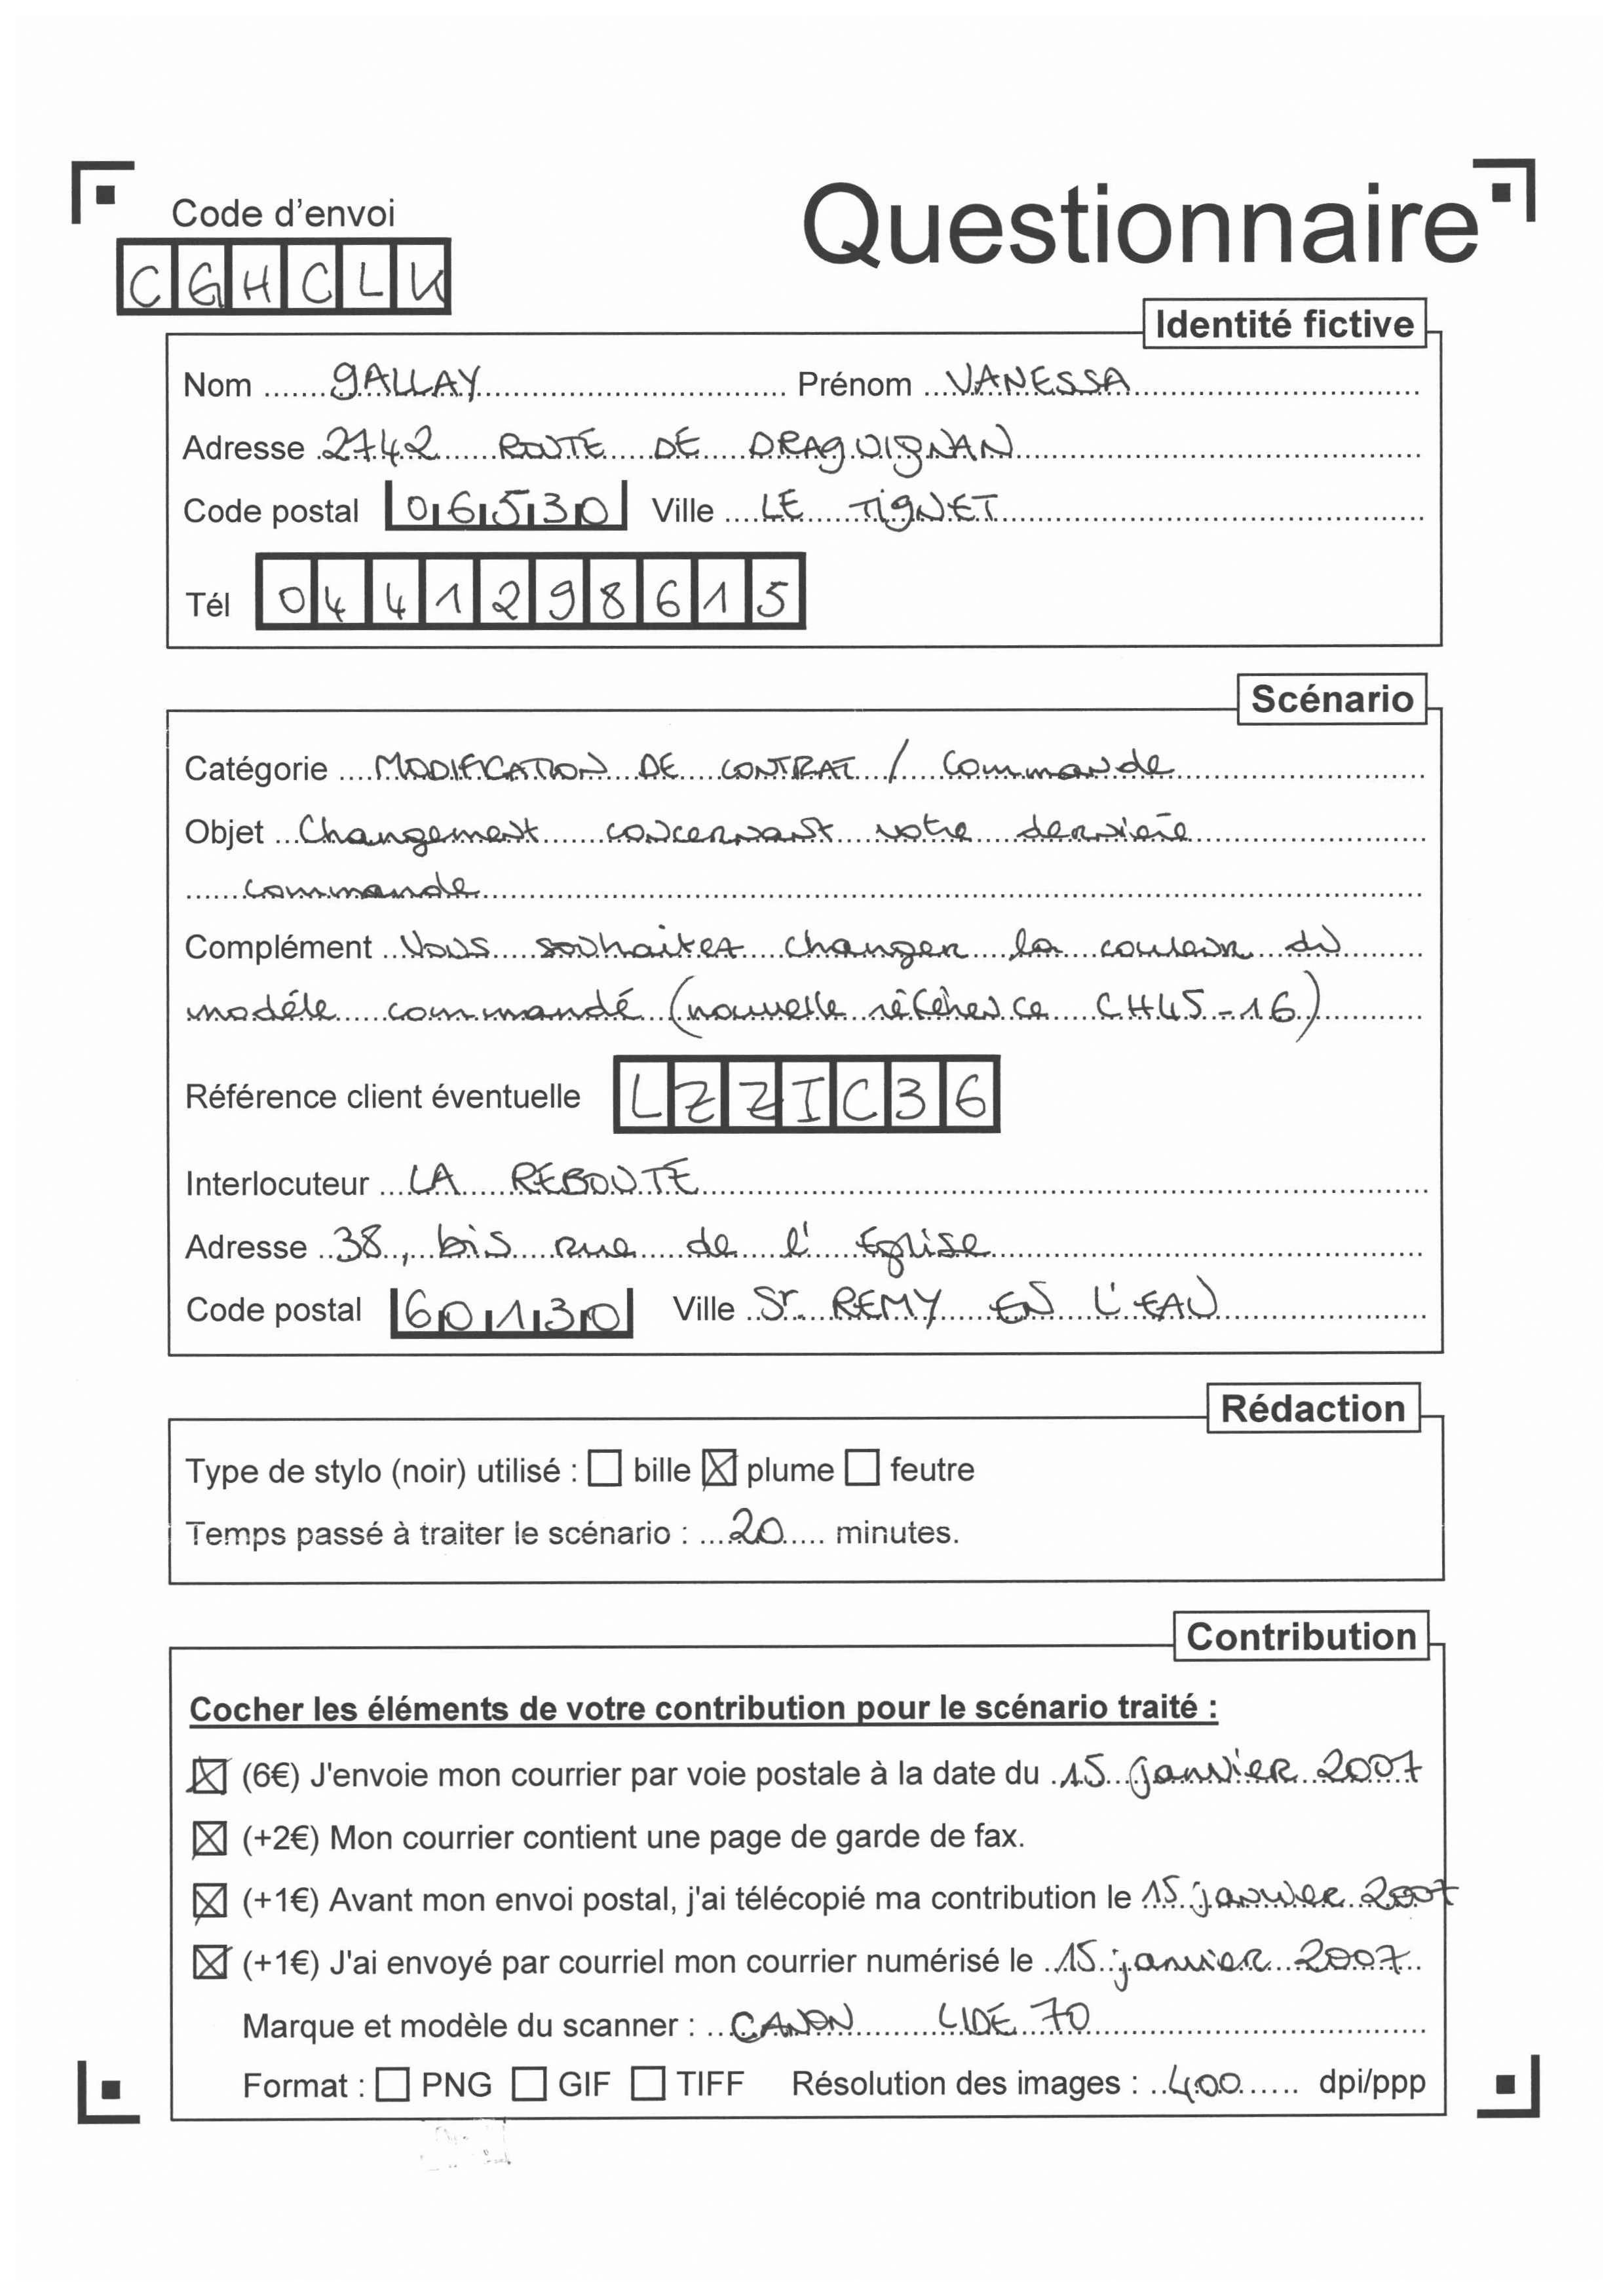 Code d'envoi
Questionnaire
CGHCLK
Identité fictive
Nom GALLAY Prénom VANESSA
Adresse 2742 ROUTE DE DRAGUIGNAN
Code postal 06530 Ville LE TIGNET
Tél 0441298615
Scénario
Catégorie MODIFICATION DE CONTRAT / Commande
Objet Changement concernant votre dernière
commande
Complément Vous souhaitez changer la couleur du
modéle commandé (nouvelle référence CH45-16)
Référence client éventuelle LZZIC36
Interlocuteur LA REBOUTE
Adresse 38, bis rue de l'Eglise
Code postal 60130 Ville ST. REMY EN L'EAU
Rédaction
Type de stylo (noir) utilisé : ☐ bille ☒ plume ☐ feutre
Temps passé à traiter le scénario : 20 minutes.
Contribution
Cocher les éléments de votre contribution pour le scénario traité :
☒ (6€) J'envoie mon courrier par voie postale à la date du 15 janvier 2007
☒ (+2€) Mon courrier contient une page de garde de fax.
☒ (+1€) Avant mon envoi postal, j'ai télécopié ma contribution le 15 janvier 2007
☒ (+1€) J'ai envoyé par courriel mon courrier numérisé le 15 janvier 2007
Marque et modèle du scanner : CANON LIDE 70
Format : ☐ PNG ☐ GIF ☐ TIFF Résolution des images : 400 dpi/ppp